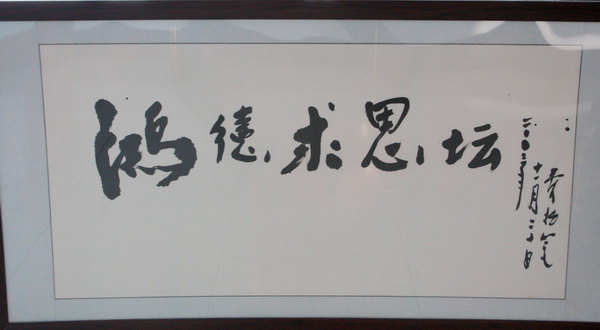 鸿德求思坛
二〇〇三年
十一月二十日